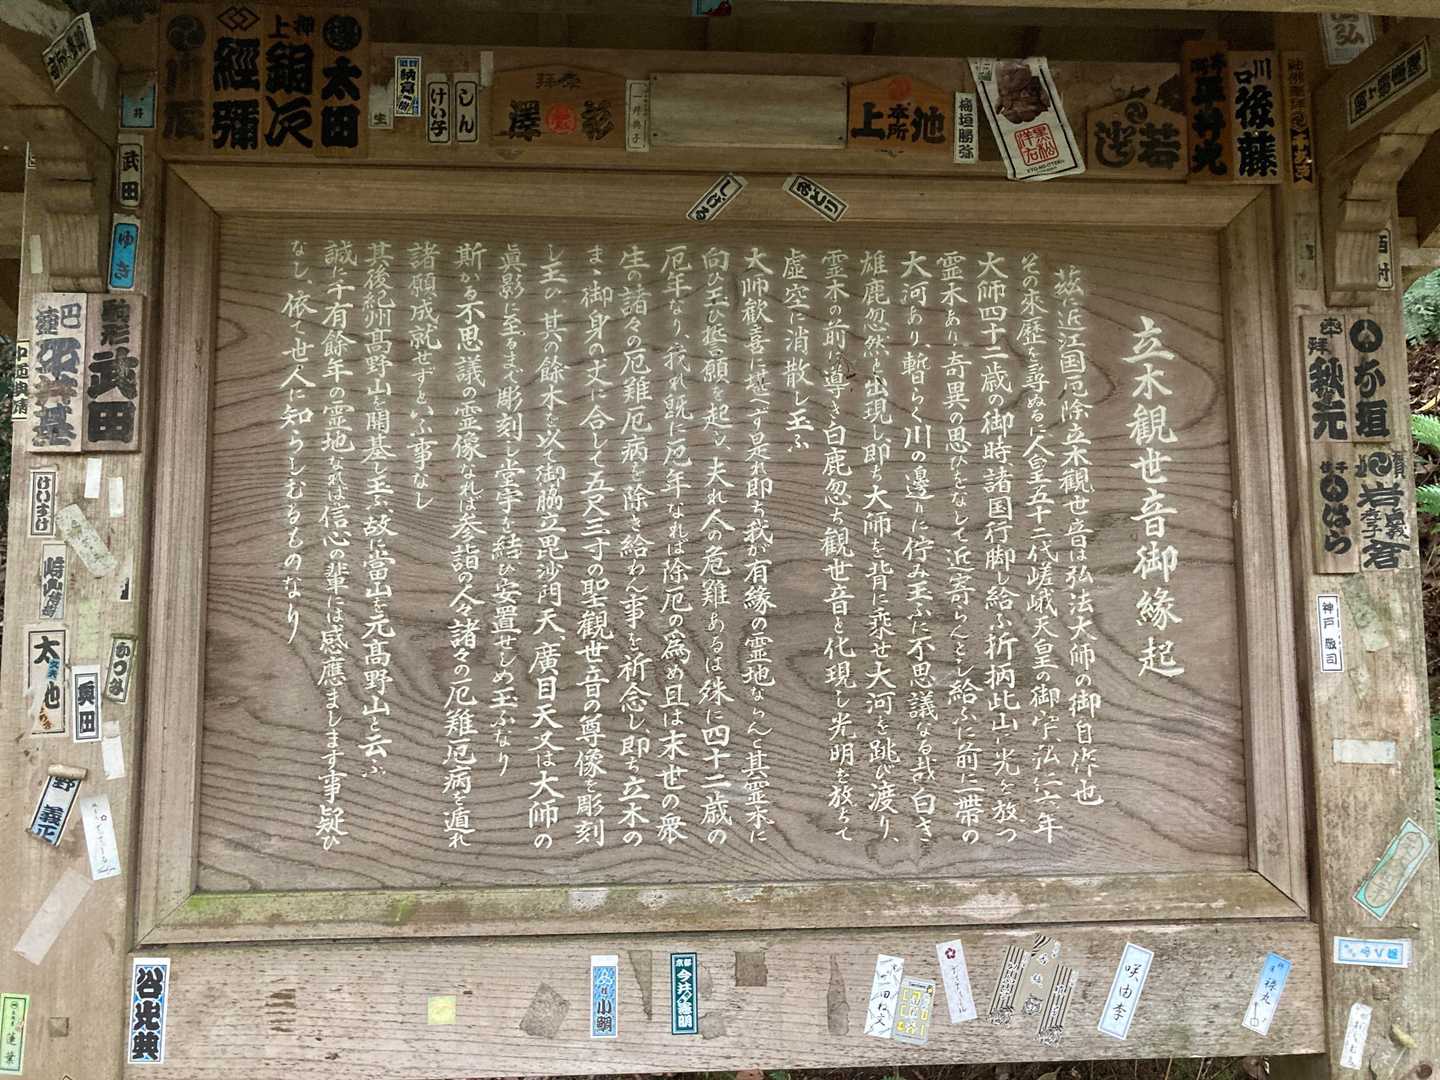 立木観世音御縁起
茲に近江国厄除立木観世音は弘法大師の御自作也
その来歴を尋ぬるに人皇五十二代嵯峨天皇の御宇、弘仁六年
大師四十二歳の御時、諸国行脚し給ふ折柄此山に光を放つ
霊木あり、奇異の思ひをなして近寄らんとし給ふに前に一帯の
大河あり、暫らく川の邊りに佇み玉ふに不思議なる哉白き
雄鹿忽然と出現し即ち大師を背に乗せ大河を跳び渡り、
霊木の前に導き白鹿忽ち観世音と化現し光明を放ちて
虚空に消散し玉ふ
大師歓喜に堪へず是れ即ち我が有縁の霊地ならんと其霊木に
向ひ玉ひ誓願を起し、夫れ人の危難あるは殊に四十二歳の
厄年なり、我れ既に厄年なれば除厄の為め且は末世の衆
生の諸々の厄難厄病を除き給わん事を祈念し、即ち立木の
まゝ御身の丈に合して五尺三寸の聖観世音の尊像を彫刻
し玉ひ其の餘木を以て御脇立毘沙門天、廣目天又は大師の
眞影に至るまで彫刻し堂宇を結び安置せしめ玉ふなり
斯かる不思議の霊像なれば参詣の人々諸々の厄難厄病を遁れ
諸願成就せずといふ事なし
其後紀州髙野山を開基し玉ふ、故に當山を元髙野山と云ふ
誠に千有餘年の霊地なれば信心の輩には感應まします事疑ひ
なし、依て世人に知らしむるものなり
太田
上
銅次
經彌
納富
けい子
しん
奉拝
澤
本所
上
池
梅垣勝弥
若
平井
川口
後藤
しげる
武田
ゆき
駒形
武田
巴
平井基
けいすけ
かつみ
太
池
真田
野
義正
谷光典
小嗣
京都
咲由季
奉拝
秋元
稲垣
千住
いはら
岩倉
神戸敬司
西村
蓮葉